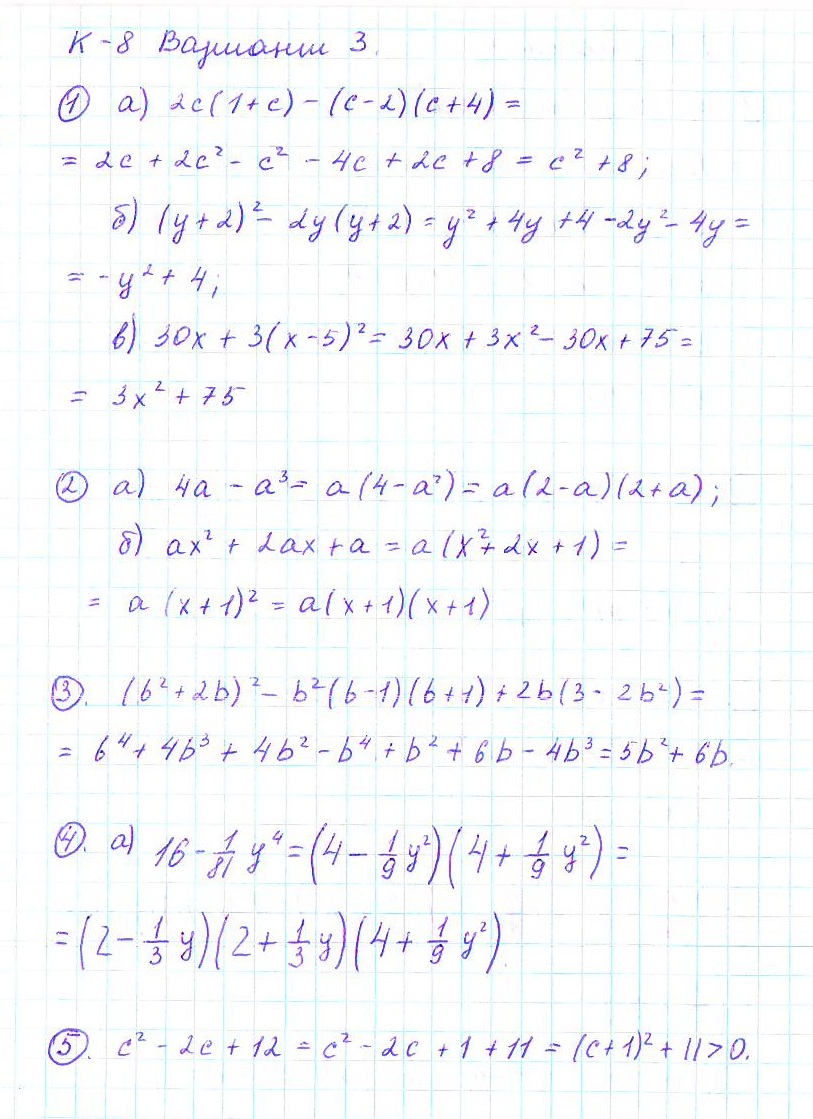 К-8 Вариант 3.
① а) 2c(1+c) - (c-2)(c+4) =
= 2c + 2c² - c² - 4c + 2c + 8 = c² + 8;
б) (y+2)² - 2y(y+2) = y² + 4y + 4 - 2y² - 4y =
= -y² + 4;
в) 30x + 3(x-5)² = 30x + 3x² - 30x + 75 =
= 3x² + 75
② а) 4a - a³ = a(4-a²) = a(2-a)(2+a);
б) ax² + 2ax + a = a(x² + 2x + 1) =
= a(x+1)² = a(x+1)(x+1)
③. (b²+2b)² - b²(b-1)(b+1) + 2b(3 - 2b²) =
= b⁴ + 4b³ + 4b² - b⁴ + b² + 6b - 4b³ = 5b² + 6b.
④. а) 16 - 1/81 y⁴ = (4 - 1/9 y²)(4 + 1/9 y²) =
= (2 - 1/3 y)(2 + 1/3 y)(4 + 1/9 y²).
⑤. c² - 2c + 12 = c² - 2c + 1 + 11 = (c+1)² + 11 > 0.